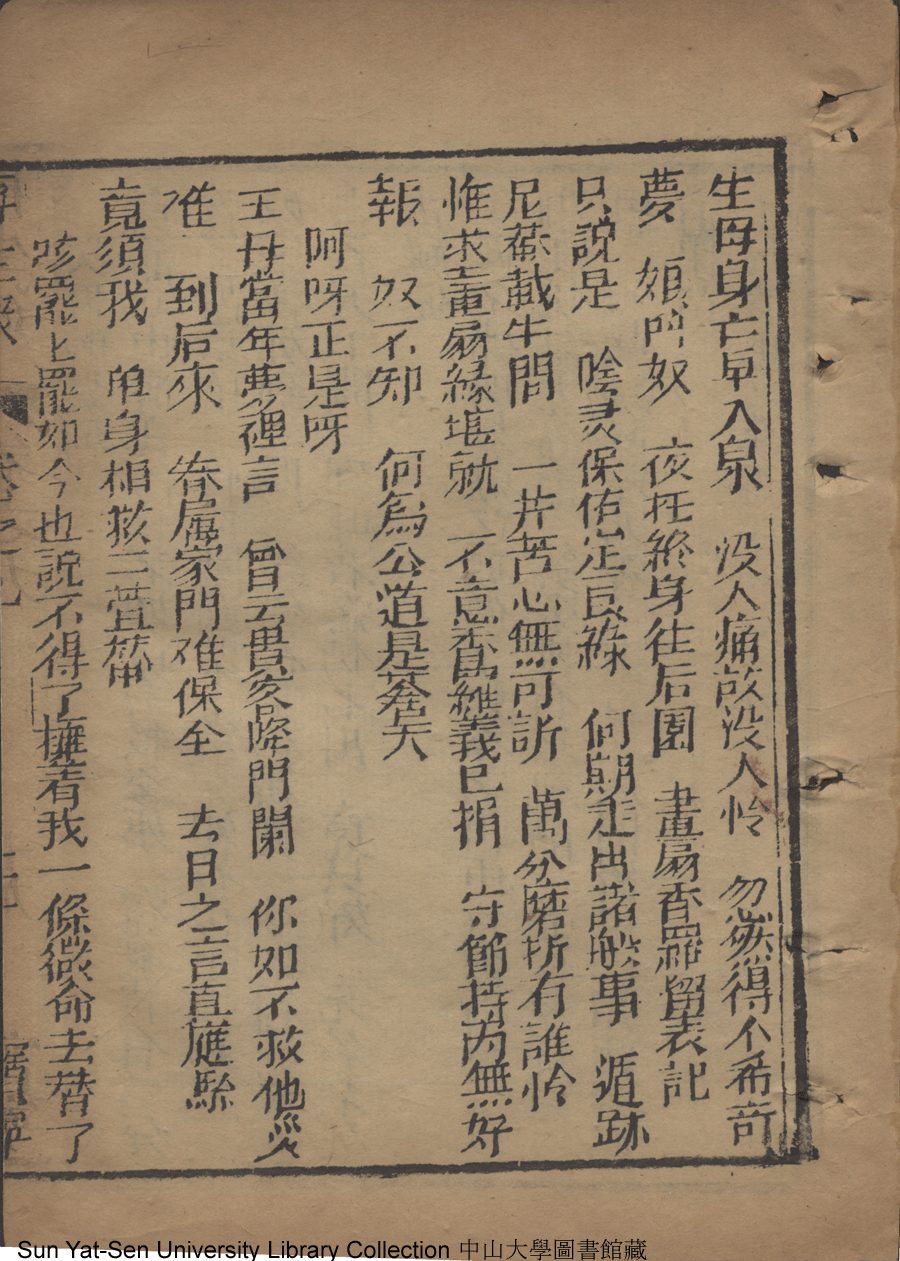 生母身亡早入泉　没人痛故没人怜　忽然得个希奇
夢　娘門奴　夜在終身往后園　畫扇香羅留表記
只説是　啥灵保佑定良緣　何期走出諸般事　遁跡
尼菴載牛間　一片苦心無可訴　萬分磨折有誰怜
惟求董扇緣堪就　不意香羅義已捐　守節持兩無好
報　奴不知　何爲公道是蒼天
阿呀正是呀
王母當年夢裡言　曾云貴客降門闌　你如不救他災
难　到后來　眷属家門难保全　去日之言直應驗
竟須我　单身相救二萱帋
咳罷上罷如今也説不得了擁著我一條微命去替了
卷之九
Sun Yat-Sen University Library Collection 中山大學圖書館藏